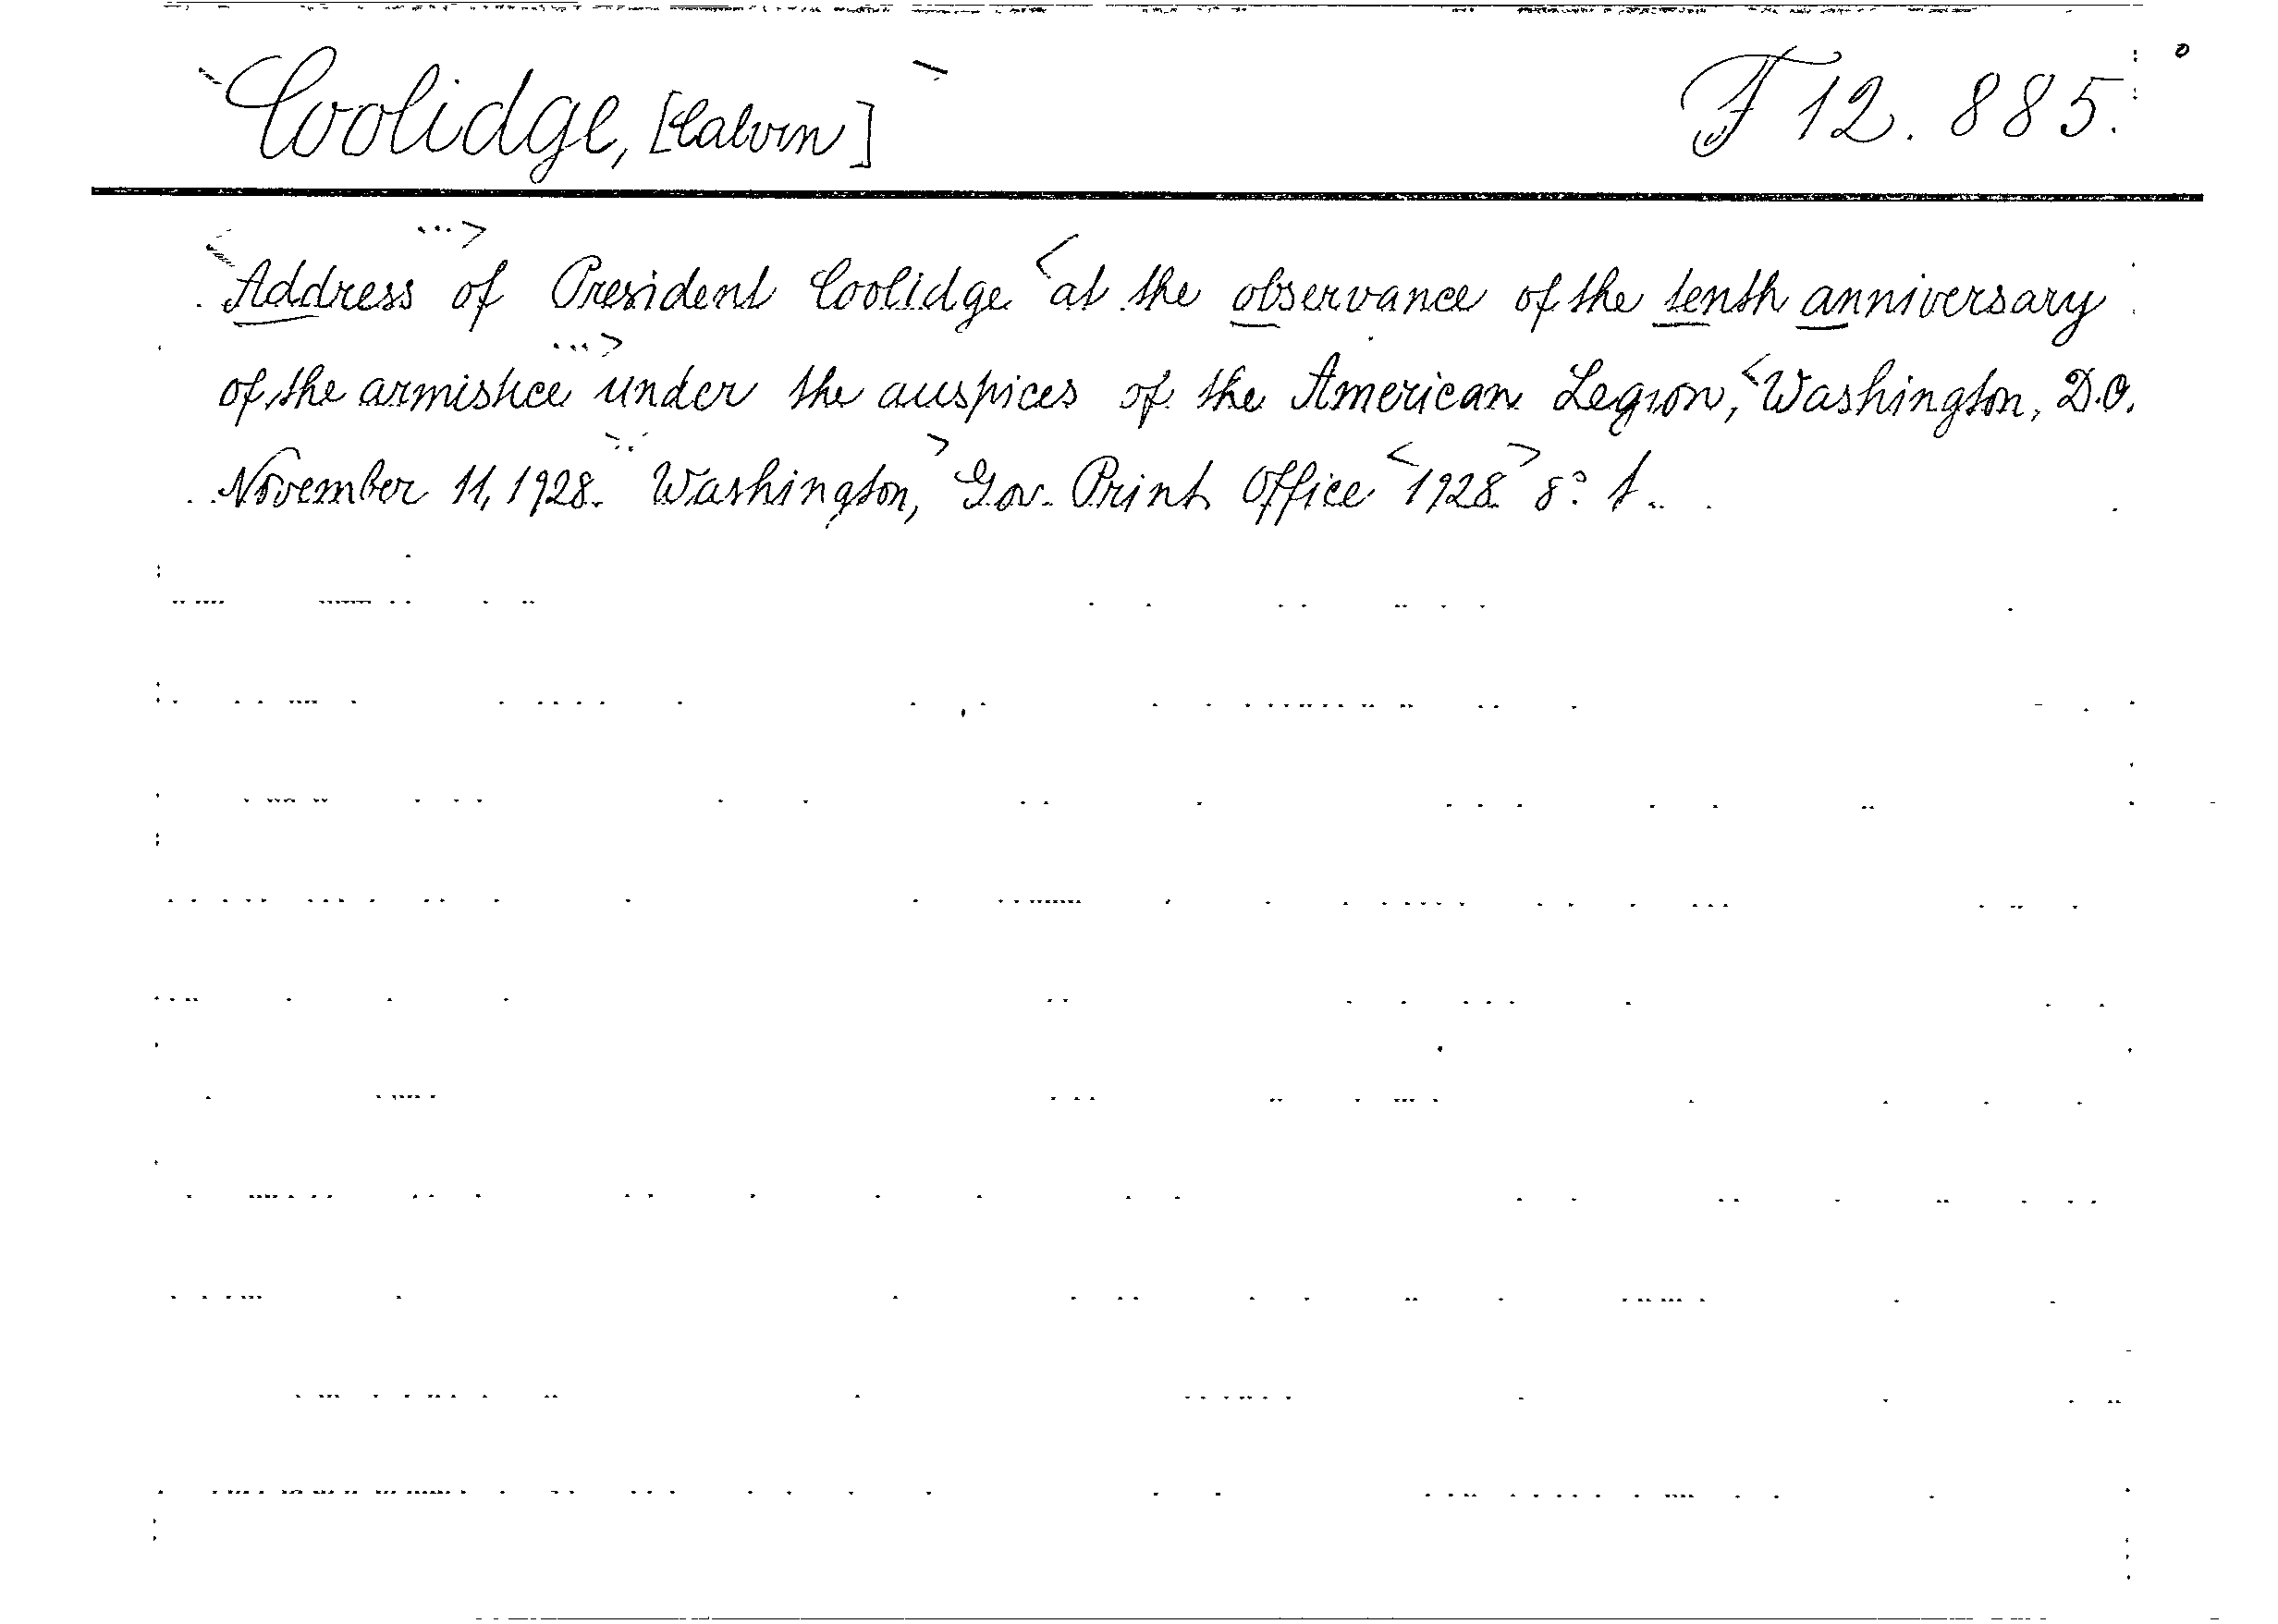 Coolidge, [Calvin]
F 12.885.
Address of President Coolidge at the observance of the tenth anniversary
of the armistice under the auspices of the American Legion, Washington, D.C.
November 11, 1928. Washington, Gov. Print Office 1928 8°